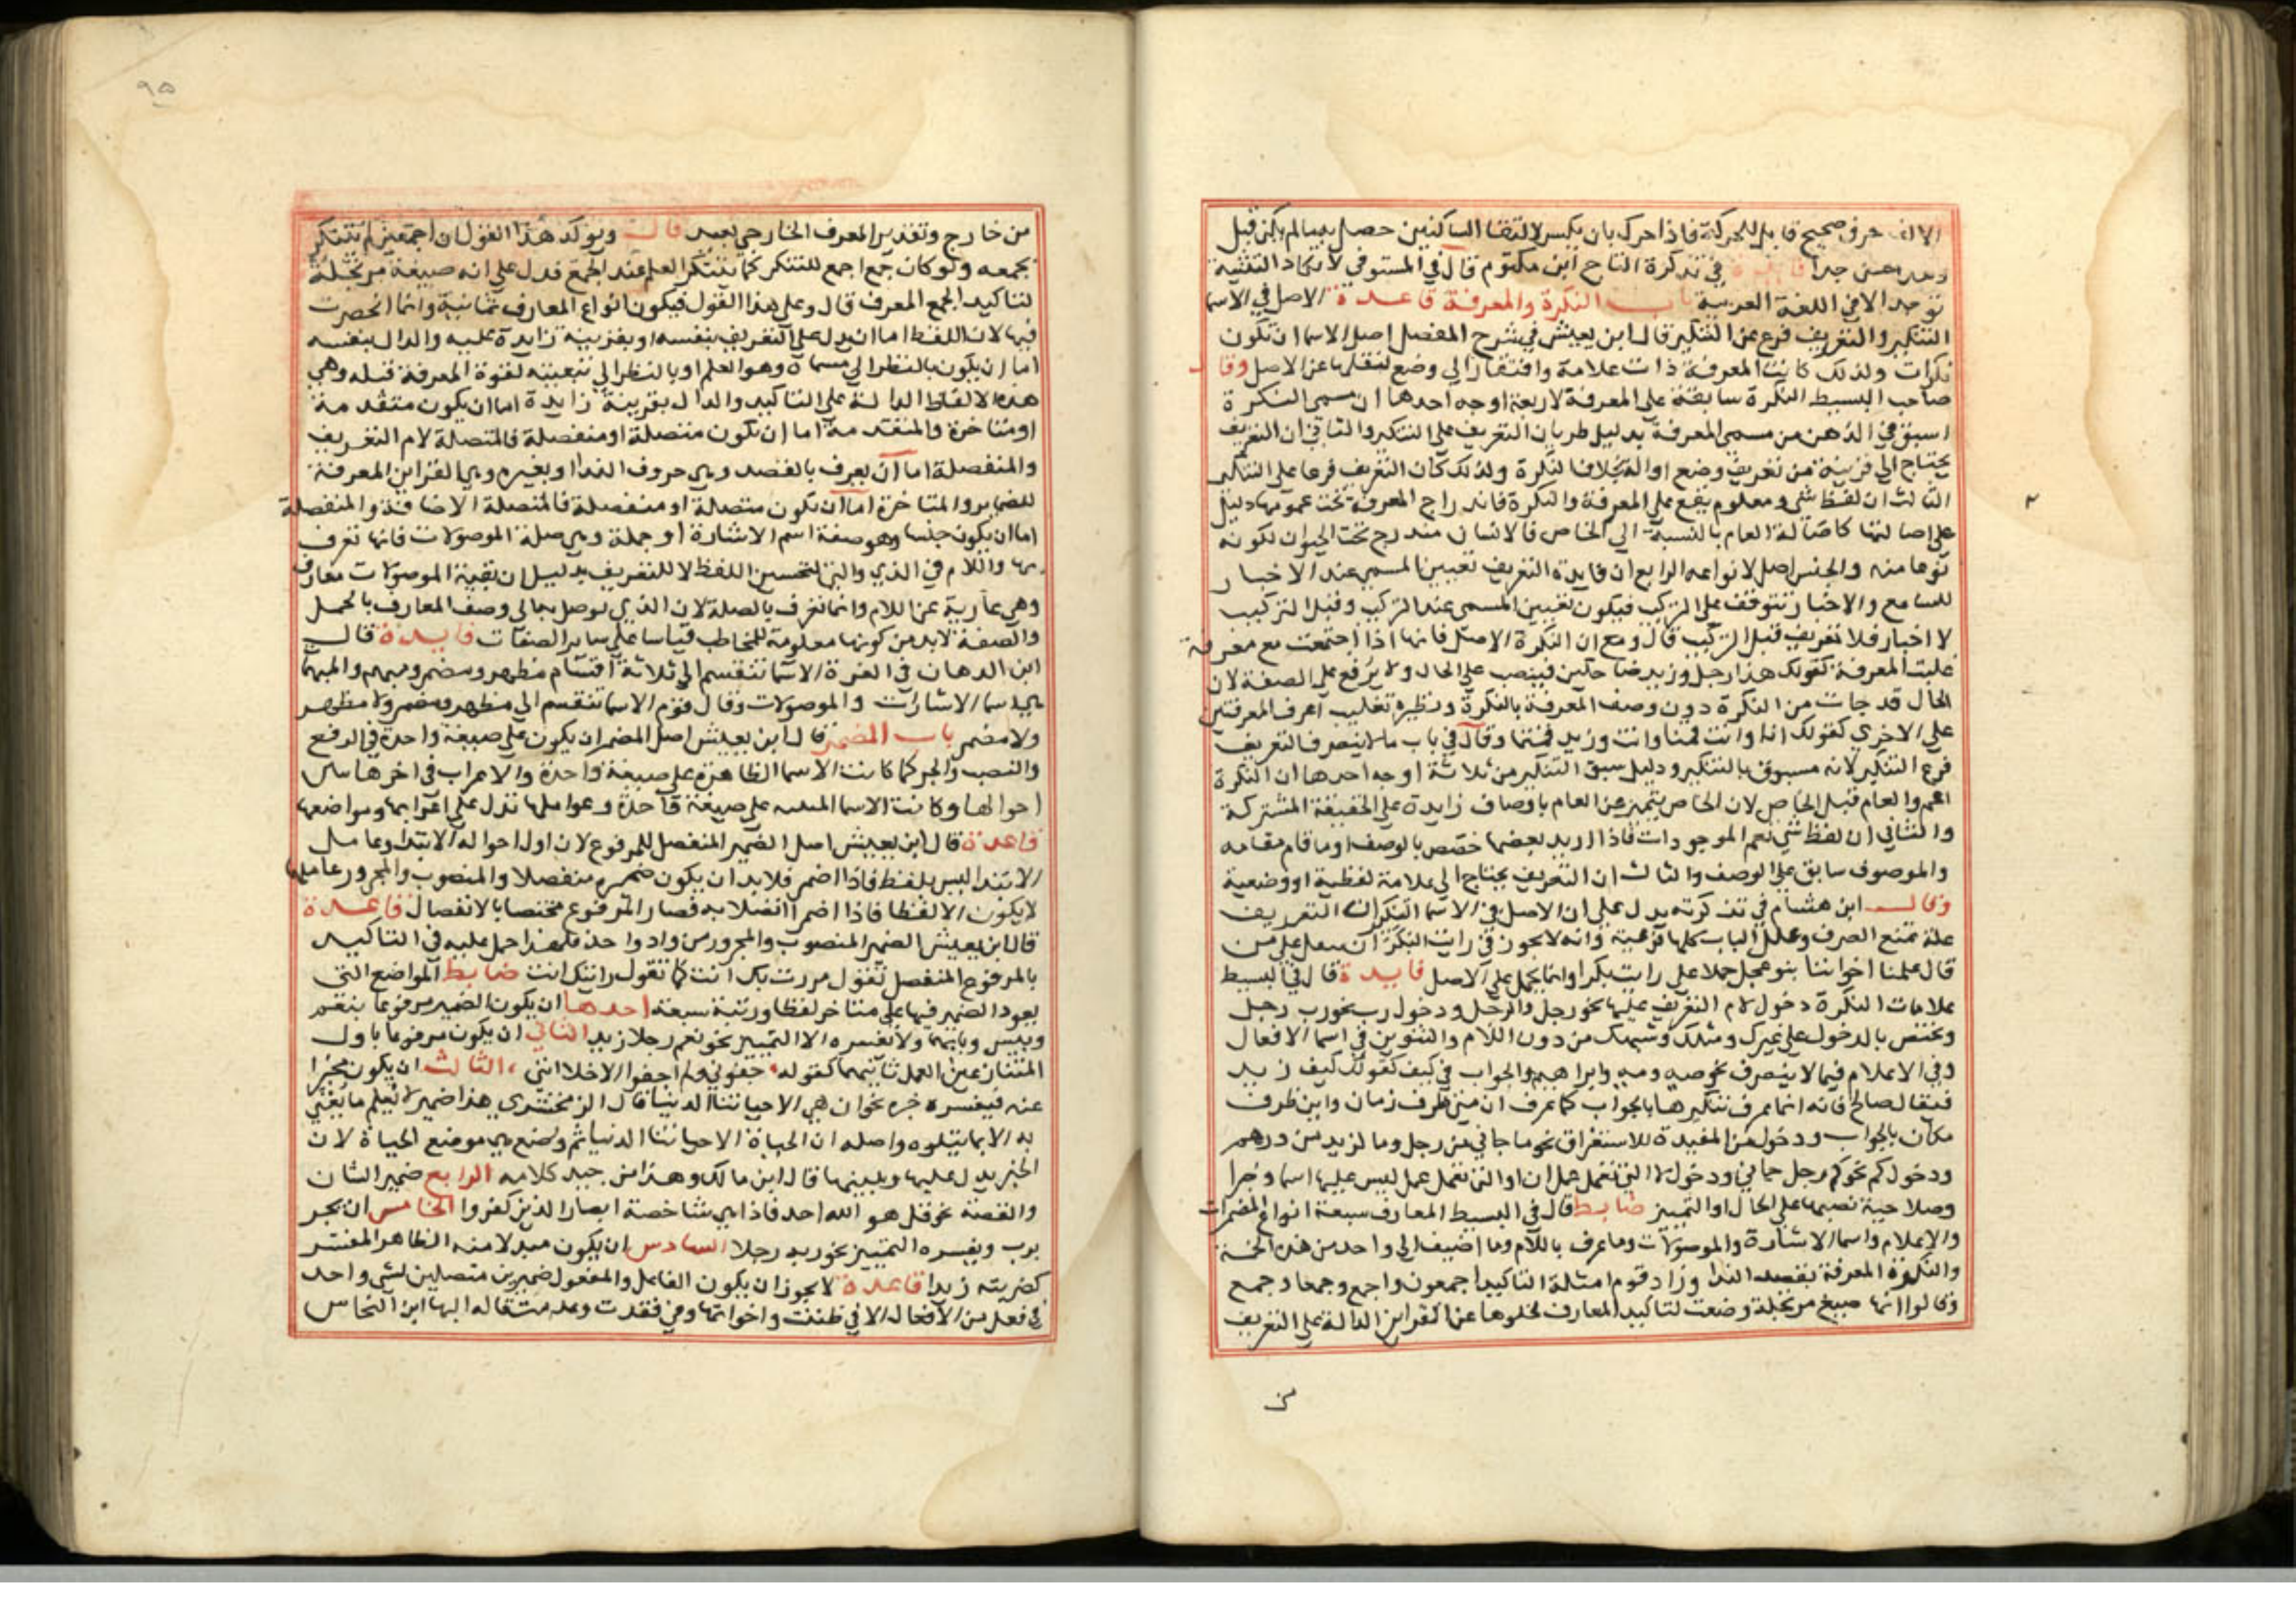 الالف حرف صحيح قابل للحركة فاذا حرك بان يكسر لالتقا الساكنين حصل بينا لم يكن قبل
وهذا حسن جدا فايدة في تذكرة التاج ابن مكتوم قال في المستوفي لا تكاد التثنية
توجد الا في اللغة العربية باب النكرة والمعرفة قاعدة الاصل في الاسما
التنكير والتعريف فرع عن التنكير قال ابن يعيش في شرح المفصل اصل الاسما ان تكون
نكرات ولذلك كانت المعرفة ذات علامة وافتقار الى وضع لنقلها عن الاصل وقال
صاحب البسيط النكرة سابقة على المعرفة لاربعة اوجه احدها ان مسمى النكرة
اسبق في الذهن من مسمى المعرفة بدليل طريان التعريف على التنكير والثاني ان التعريف
يحتاج الى قرينة من تعريف وضع او الة بخلاف النكرة ولذلك كان التعريف فرعا على التنكير
الثالث ان لفظ شي ومعلوم يقع على المعرفة والنكرة فاندراج المعرفة تحت عمومها دليل
على اصالتها كاصالة العام بالنسبة الى الخاص فالانسان مندرج تحت الحيوان لكونه
نوعا منه والجنس اصل لانواعه الرابع ان فايدة التعريف تعيين المسمى عند الاخبار
للسامع والاخبار تتوقف على التركيب فيكون تعيين المسمى عند التركيب وقبل التركيب
لا اخبار فلا تعريف قبل التركيب قال ومع ان النكرة الاصل فانها اذا اجتمعت مع معرفة
غلبت المعرفة كقولك هذا رجل وزيد ضاحكين فينصب على الحال ولا يرفع على الصفة لان
الحال قد جات من النكرة دون وصف المعرفة بالنكرة ونظيره تغليب اعرف المعرفتين
على الاخرى كقولك انا وانت قمنا وانت وزيد قمتما وقال في باب ما لا ينصرف التعريف
فرع التنكير لانه مسبوق بالتنكير ودليل سبق التنكير من ثلاثة اوجه احدها ان النكرة
اعم والعام قبل الخاص لان الخاص يتميز عن العام باوصاف زايدة على الحقيقة المشتركة
والثاني ان لفظ شي يعم الموجودات فاذا اريد بعضها خصص بالوصف او ما قام مقامه
والموصوف سابق على الوصف والثالث ان التعريف يحتاج الى علامة لفظية او وضعية
وقال ابن هشام في تذكرته يدل على ان الاصل في الاسما التنكير ان التعريف
علة تمنع الصرف وعلل الباب كلها فرعية وانه لا يجوز في رايت البكر ان
قال علمنا اخواننا بنو عجل حملا على رايت بكرا وانما يحمل على الاصل فايدة قال في البسيط
علامات النكرة دخول لام التعريف عليها نحو رجل والرجل ودخول رب نحو رب رجل
وتختص بالدخول على غيرك ومثلك وشبهك من دون اللام والتنوين في اسما الافعال
وفي الاعلام فيما لا ينصرف نحو صه ومه وابراهيم والجواب في كيف كقولك كيف زيد
فيقال صالح فانه انما عرف تنكيرها بالجواب كما عرف ان متى ظرف زمان واين ظرف
مكان بالجواب ودخول من المفيدة للاستغراق نحو ما جاني من رجل وما لزيد من درهم
ودخول كم نحو كم رجل جاني ودخول لا التي تعمل عمل ان او التي تعمل عمل ليس عليها اسما وخبرا
وصلاحية نصبها على الحال او التمييز ضابط قال في البسيط المعارف سبعة انواع المضمرات
والاعلام واسما الاشارة والموصولات وما عرف باللام وما اضيف الى واحد من هذه الخمسة
والنكرة المعرفة بقصد الندا وزاد قوم امثلة التاكيد اجمعون واجمع وجمعا وجمع
وقالوا انها صيغ مرتجلة وضعت لتاكيد المعارف لخلوها عن القراين الدالة على التعريف
من
٩٥
من خارج وتقدير المعرف الخارجي بعيد قالت ويوكد هذا القول ان اجمعين لم يتنكر
بجمعه ولو كان جمع اجمع للتنكر كما يتنكر العلم عند الجمع فدل على انه صيغة مرتجلة
لتاكيد الجمع المعرف قال وعلى هذا القول فيكون انواع المعارف ثمانية وانما انحصرت
فيها لان اللفظ اما ان يدل على التعريف بنفسه او بقرينة زايدة عليه والدال بنفسه
اما ان يكون بالنظر الى مسماه وهو العلم او بالنظر الى تبعيته لقوة المعرفة قبله وهي
هذه الالفاظ الدالة على التاكيد والدال بقرينة زايدة اما ان يكون متقدمة
او متاخرة والمتقدمة اما ان تكون متصلة او منفصلة فالمتصلة لام التعريف
والمنفصلة اما ان يعرف بالقصد وهي حروف الندا او بغيره وهي القراين المعرفة
للضماير والمتاخرة اما ان تكون متصلة او منفصلة فالمتصلة الاضافة والمنفصلة
اما ان يكون جنسا وهو صفة اسم الاشارة او جملة وهي صلة الموصولات فانها تعرف
بها واللام في الذي والتي لتحسين اللفظ لا للتعريف بدليل ان بقية الموصولات معارف
وهي عارية عن اللام وانما تعرف بالصلة لان الذي توصل بها الى وصف المعارف بالجمل
والصفة لا بد من كونها معلومة للمخاطب قياسا على ساير الصفات فايدة قال
ابن الدهان في الغرة الاسما تنقسم الى ثلاثة اقسام مظهر ومضمر ومبهم والمبهم
هي اسما الاشارات والموصولات وقال قوم الاسما تنقسم الى مظهر ومضمر ولا مظهر
ولا مضمر باب المضمر قال ابن يعيش اصل المضمر ان يكون على صيغة واحدة في الرفع
والنصب والجر كما كانت الاسما الظاهرة على صيغة واحدة والاعراب في اخرها يبين
احوالها وكانت الاسما المبهمة على صيغة واحدة وعواملها تدل على اعرابها ومواضعها
قاعدة قال ابن يعيش اصل الضمير المنفصل للمرفوع لان اول احواله الابتدا وعامل
الابتدا ليس بلفظ فاذا اضمر فلا بد ان يكون ضميره منفصلا والمنصوب والمجرور عاملها
لا يكون الا لفظا فاذا اضمرا اتصلا به فصار المرفوع مختصا بالانفصال قاعدة
قال ابن يعيش الضمير المنصوب والمجرور من واد واحد فلهذا حمل عليه في التاكيد
بالمرفوع المنفصل تقول مررت بك انت كما تقول رايتك انت ضابط المواضع التي
يعود الضمير فيها على متاخر لفظا ورتبة سبعة احدها ان يكون الضمير مرفوعا بنعم
وبيس وبابهما ولا يفسره الا التمييز نحو نعم رجلا زيد الثاني ان يكون مرفوعا باول
المتنازعين العمل ثانيهما كقوله جفوني ولم اجف الاخلا انني ، الثالث ان يكون مخبرا
عنه فيفسره خبره نحو ان هي الا حياتنا الدنيا قال الزمخشري هذا ضمير لا يعلم ما يعني
به الا بما يتلوه واصله ان الحياة الا حياتنا الدنيا ثم وضع هي موضع الحياة لان
الخبر يدل عليها ويبينها قال ابن مالك وهذا من جيد كلامه الرابع ضمير الشان
والقصة نحو قل هو الله احد فاذا هي شاخصة ابصار الذين كفروا الخامس ان يجر
برب ويفسره التمييز نحو ربه رجلا السادس ان يكون مبدلا منه الظاهر المفسر
كضربته زيدا قاعدة لا يجوز ان يكون الفاعل والمفعول ضميرين متصلين لشي واحد
في فعل من الافعال الا في ظننت واخواتها وفي فقدت وعدمت قاله البها ابن النحاس